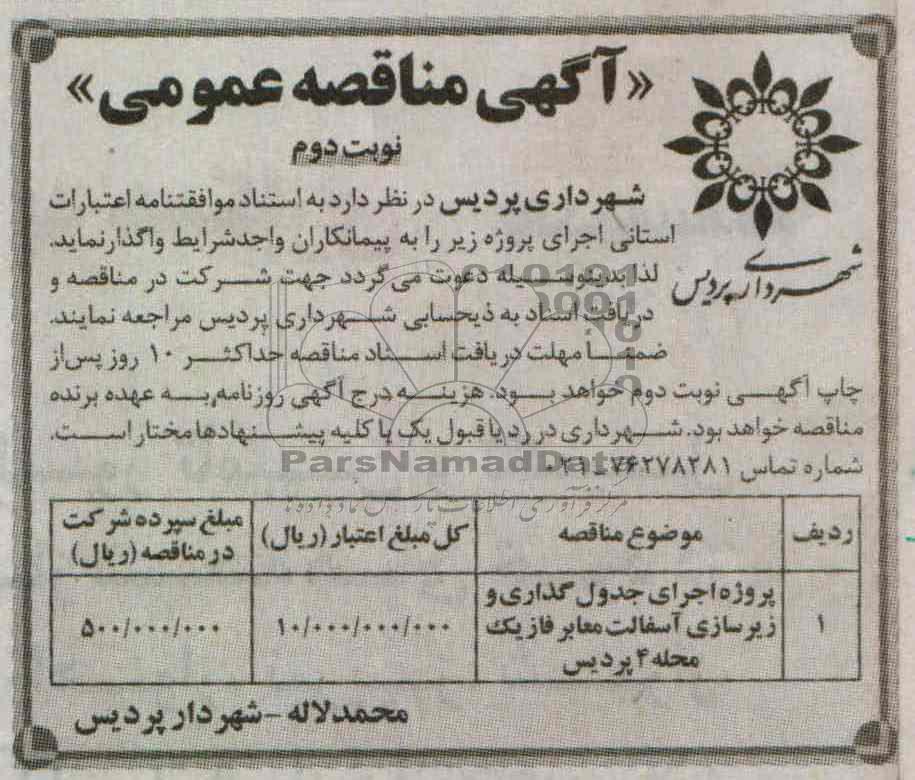 «آگهی مناقصه عمومی»
نوبت دوم
شهرداری پردیس
شهرداری پردیس در نظر دارد به استناد موافقتنامه اعتبارات
استانی اجرای پروژه زیر را به پیمانکاران واجدشرایط واگذارنماید.
لذا بدینوسیله دعوت می گردد جهت شرکت در مناقصه و
دریافت اسناد به ذیحسابی شهرداری پردیس مراجعه نمایند.
ضمناً مهلت دریافت اسناد مناقصه حداکثر ۱۰ روز پس از
چاپ آگهی نوبت دوم خواهد بود. هزینه درج آگهی روزنامه به عهده برنده
مناقصه خواهد بود. شهرداری در رد یا قبول یک یا کلیه پیشنهادها مختار است.
شماره تماس ۰۲۱-۷۶۲۷۸۲۸۱
ParsNamadData
مرکز فرآوری اطلاعات پارس نماد داده ها
ردیف
موضوع مناقصه
کل مبلغ اعتبار (ریال)
مبلغ سپرده شرکت
در مناقصه (ریال)
۱
پروژه اجرای جدول گذاری و
زیرسازی آسفالت معابر فاز یک
محله ۴ پردیس
۱۰/۰۰۰/۰۰۰/۰۰۰
۵۰۰/۰۰۰/۰۰۰
محمد لاله - شهردار پردیس